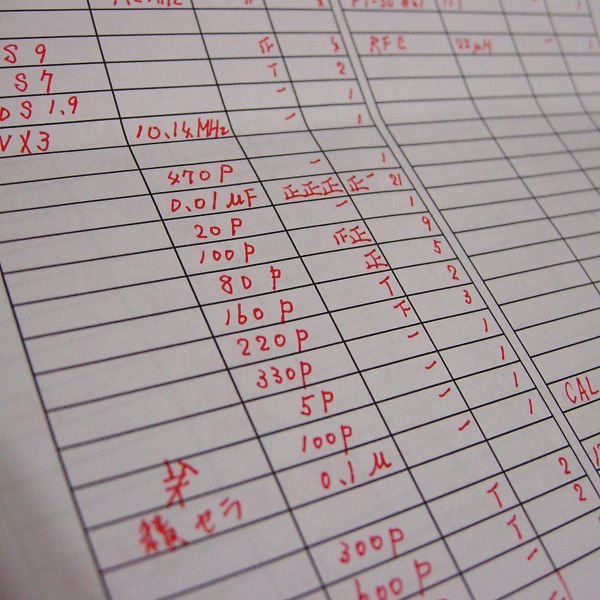 S 9 正 4 RFC 22μH 一
S 7 T 2
DS1.9 一 1
VX3 10.14MHz 一 1
470P 一 1
0.01μF 正正正正一 21
20P 一 1
100P 正正 9
80P 正 5
160P T 2
220P 下 3
330P 一 1
5P 一 1
100P 一 1 CAL
0.1μ
セラ 2
300P T 2
600P T
一